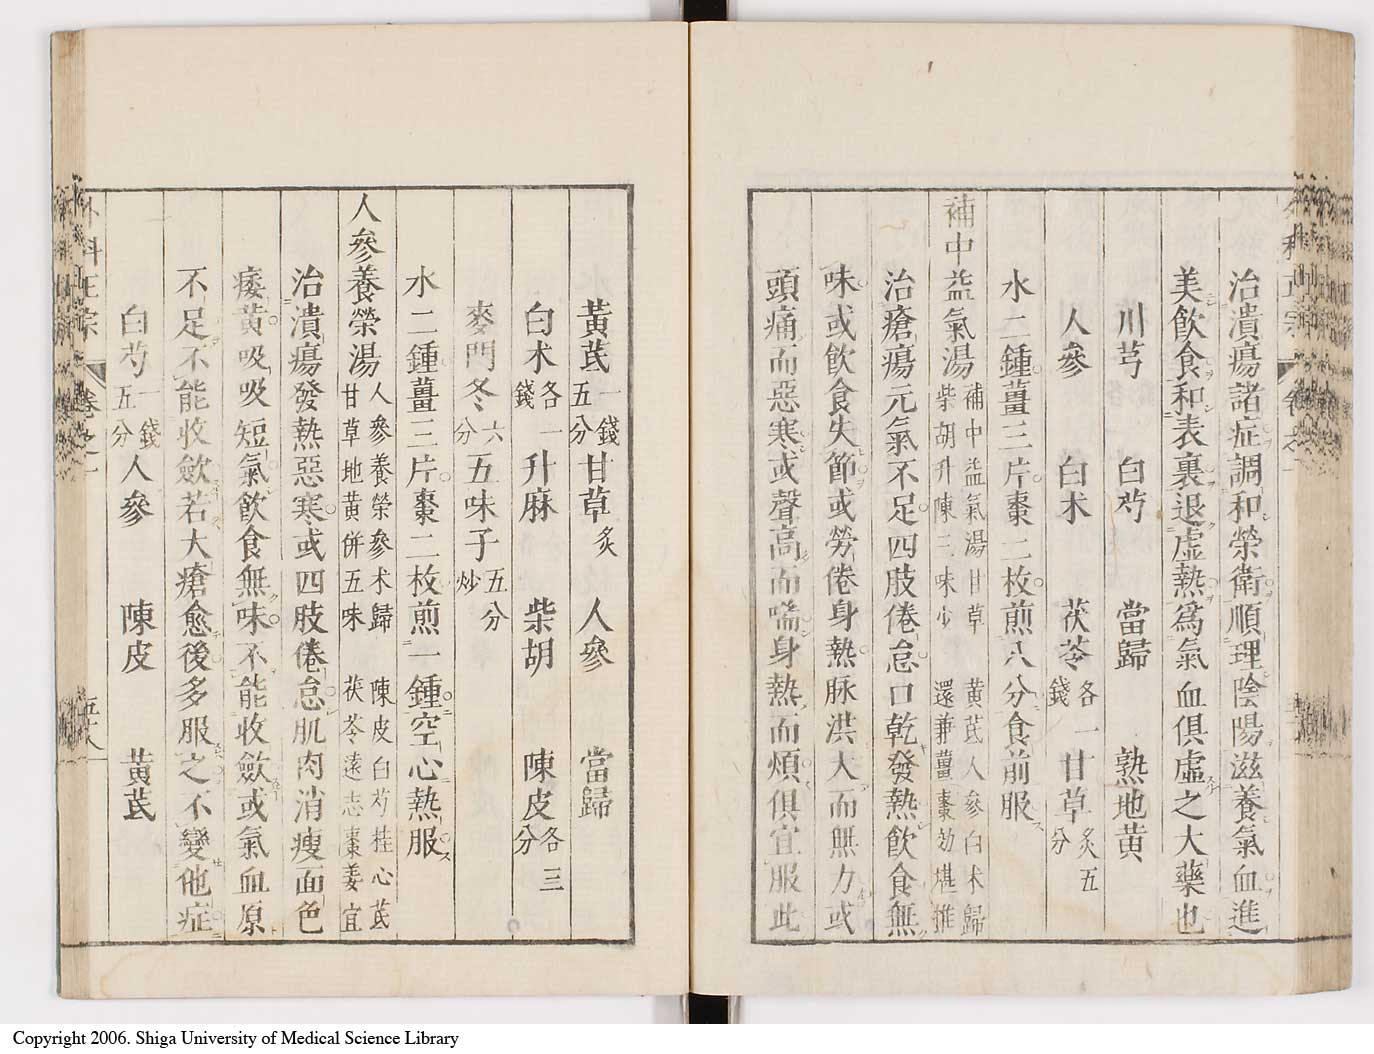 治潰瘍諸症調和榮衛順理陰陽滋養氣血進
美飲食和表裏退虛熱爲氣血俱虛之大藥也
川芎 白芍 當歸 熟地黄
人參 白术 茯苓各一錢 甘草炙五分
水二鍾薑三片棗二枚煎八分食前服
補中益氣湯 補中益氣湯甘草 黄芪人參白术歸
柴胡升陳三味少 還兼薑棗効堪推
治瘡瘍元氣不足四肢倦怠口乾發熱飲食無
味或飲食失節或勞倦身熱脉洪大而無力或
頭痛而惡寒或聲高而喘身熱而煩俱宜服此
黄芪一錢五分 甘草炙 人參 當歸
白术各一錢 升麻 柴胡 陳皮各三分
麥門冬六分 五味子五分炒
水二鍾薑三片棗二枚煎一鍾空心熱服
人參養榮湯 人參養榮參术歸 陳皮白芍桂心芪
甘草地黄併五味 茯苓遠志棗姜宜
治潰瘍發熱惡寒或四肢倦怠肌肉消瘦面色
痿黄吸吸短氣飲食無味不能收斂或氣血原
不足不能收斂若大瘡愈後多服之不變他症
白芍一錢五分 人參 陳皮 黄芪
外科正宗 卷之一 五十八
Copyright 2006. Shiga University of Medical Science Library